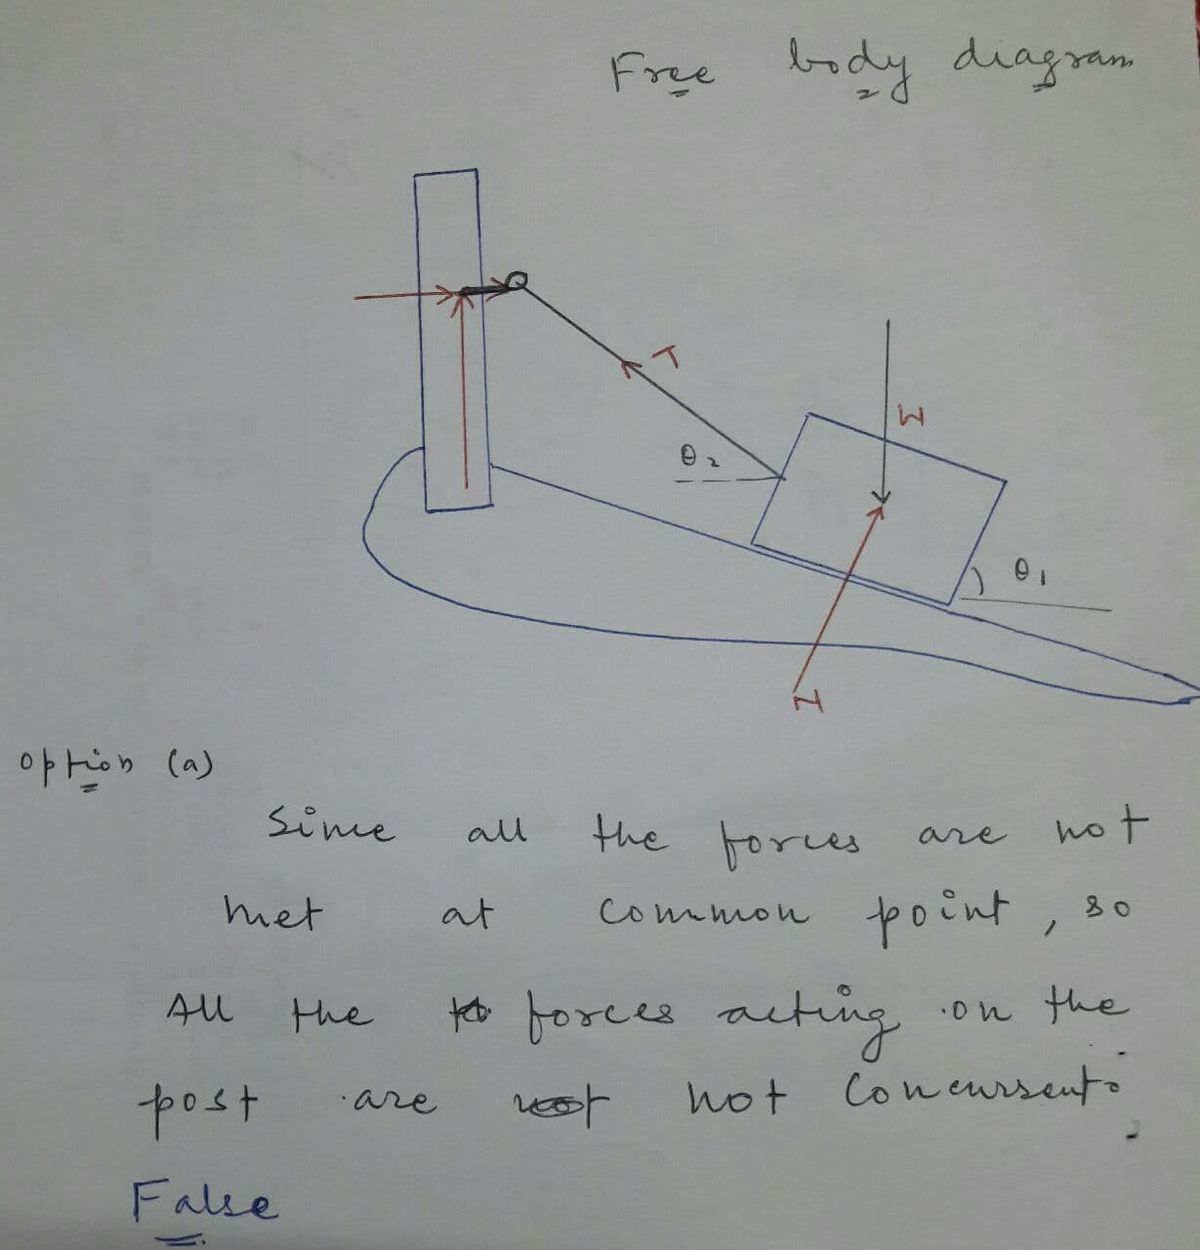 Free body diagram
T
W
θ2
θ1
N
option (a)
Since all the forces are not
met at common point, so
All the forces acting on the
post are not concurrent.
False